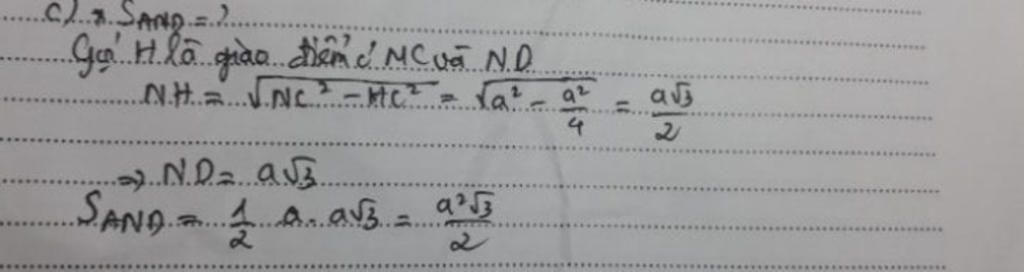 c) * S_AND = ?
Gọi H là giao điểm c' MC và ND
NH = √(NC² - HC²) = √(a² - a²/4) = a√3/2
=> ND = a√3
S_AND = 1/2 a . a√3 = a²√3/2